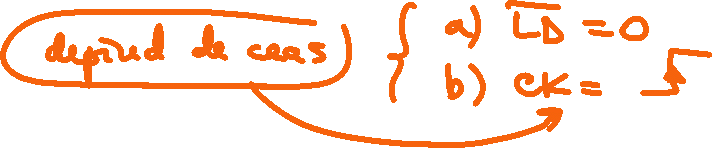 depind de caas { a) L̅D̅ = 0
b) CK = ↑